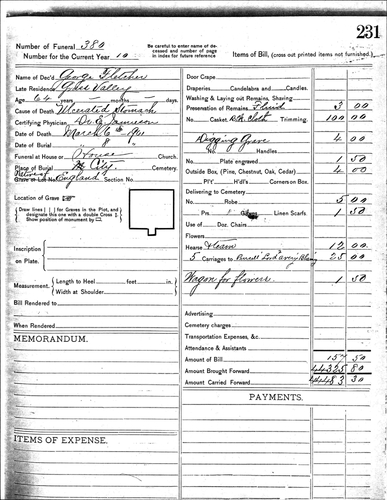 231
Number of Funeral 380
Number for the Current Year 10
Be carefully to enter name of deceased and number of bill in index for future reference
Items of Bill, (cross out printed items not furnished.)
Name of Dec'd George Fletcher
Late Residence Valley
Age 64 years months days.
Cause of Death Ulcerated Stomach
Certifying Physician Dr. E. Jamieson
Date of Death March 6th 1901
Date of Burial 8 "
Funeral at House or House Church.
Place of Burial Cemetery.
Native of England
Grave or Lot No. Section No.
Location of Grave
Draw lines | | | for Graves in the Plot, and designate this one with a double Cross
Show position of monument by
Inscription on Plate.
Measurement. Length to Heel feet in.
Width at Shoulder
Bill Rendered to
When Rendered
MEMORANDUM.
ITEMS OF EXPENSE.
Door Crape
Draperies, Candelabra and Candles.
Washing & Laying out Remains, Shaving
Preservation of Remains Fluid 3 00
No. Casket Blk Cloth Trimming. 100 00
Digging Grave 4 00
No. Handles
Plate engraved 1 50
Outside Box, (Pine, Chestnut, Oak, Cedar) 4 00
Pl'y H'dl's Corners on Box.
Delivering to Cemetery
No. Robe 5 00
Prs. Gloves Linen Scarfs 1 50
Use of Doz. Chairs
Flowers
Hearse & team 12 00
5 Carriages to 25 00
Wagon for flowers 1 50
Advertising
Cemetery charges
Transportation Expenses, &c.
Attendance & Assistants
Amount of Bill 157 50
Amount Brought Forward 80
Amount Carried Forward 30
PAYMENTS.